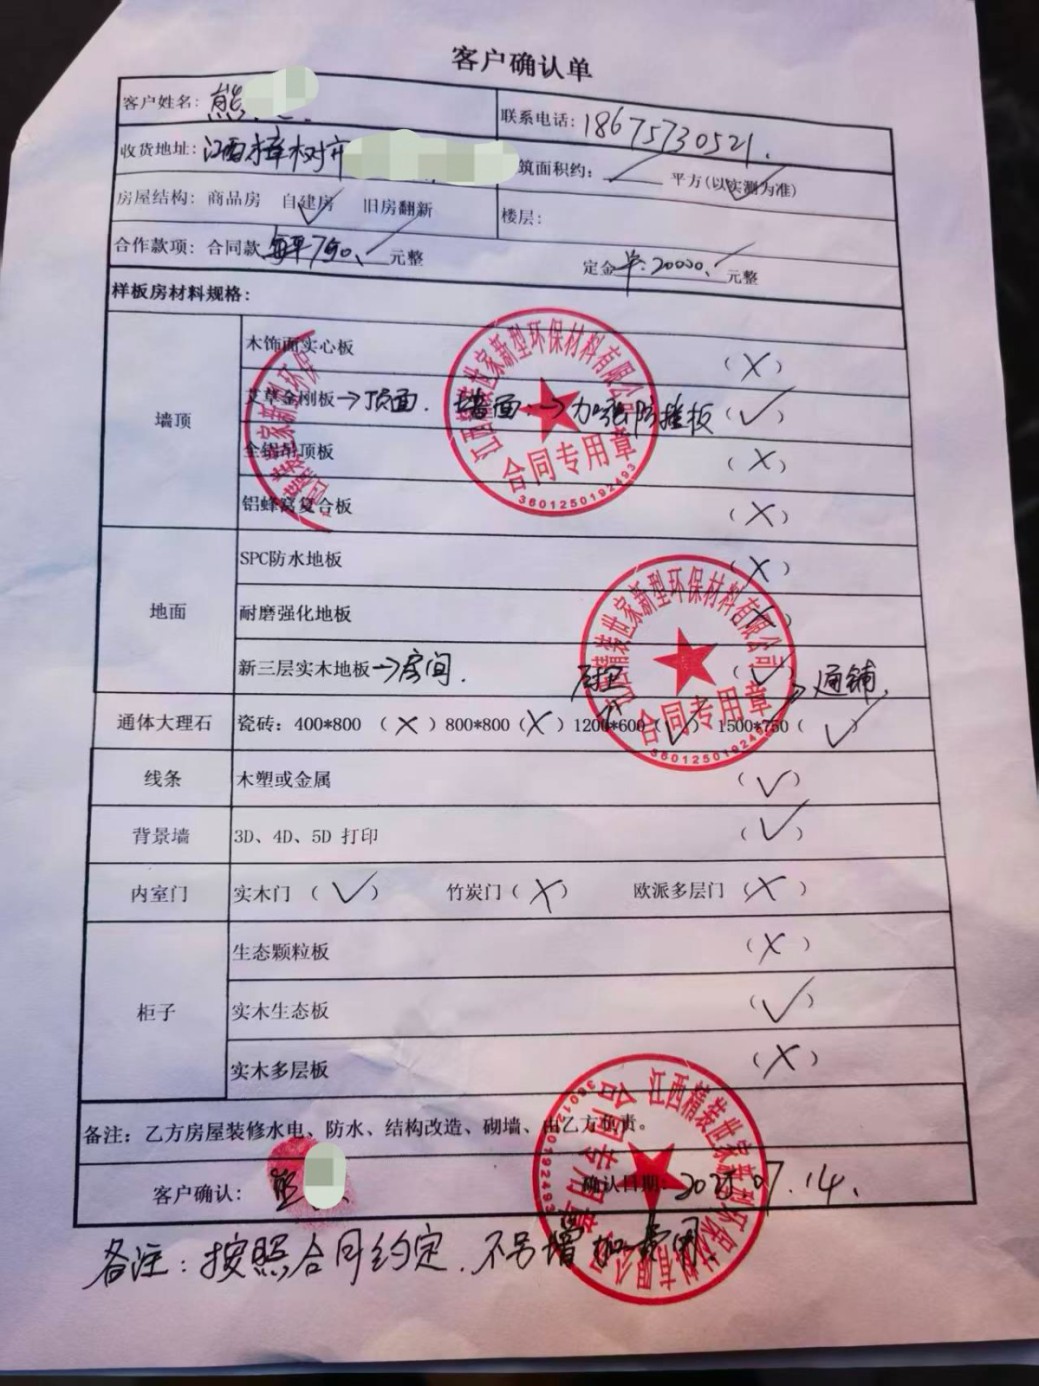 客户确认单
客户姓名: 熊
联系电话: 18675730521.
收货地址: 江西樟树市
筑面积约: 平方(以实测为准)
房屋结构: 商品房 自建房 ✓ 旧房翻新
楼层:
合作款项: 合同款 每平750. 元整
定金 20000. 元整
样板房材料规格:
墙顶
木饰面实心板 (X)
艾草金刚板→顶面. 墙面→加强防撞板 (✓)
全铝吊顶板 (X)
铝蜂窝复合板 (X)
地面
SPC防水地板 (X)
耐磨强化地板 (X)
新三层实木地板→房间. (✓)
通铺.
通体大理石 瓷砖: 400*800 (X) 800*800 (X) 1200*600 (✓) 1500*750 (✓)
线条 木塑或金属 (✓)
背景墙 3D、4D、5D 打印 (✓)
内室门 实木门 (✓) 竹炭门 (X) 欧派多层门 (X)
柜子
生态颗粒板 (X)
实木生态板 (✓)
实木多层板 (X)
备注: 乙方房屋装修水电、防水、结构改造、砌墙、由乙方负责。
客户确认: 熊
确认日期: 07.14.
备注: 按照合同约定. 不另增加费用.
江西精装世家新型环保材料有限公司
合同专用章
3601250192493
江西精装世家新型环保材料有限公司
合同专用章
江西精装世家新型环保材料有限公司
合同专用章
3601250192493